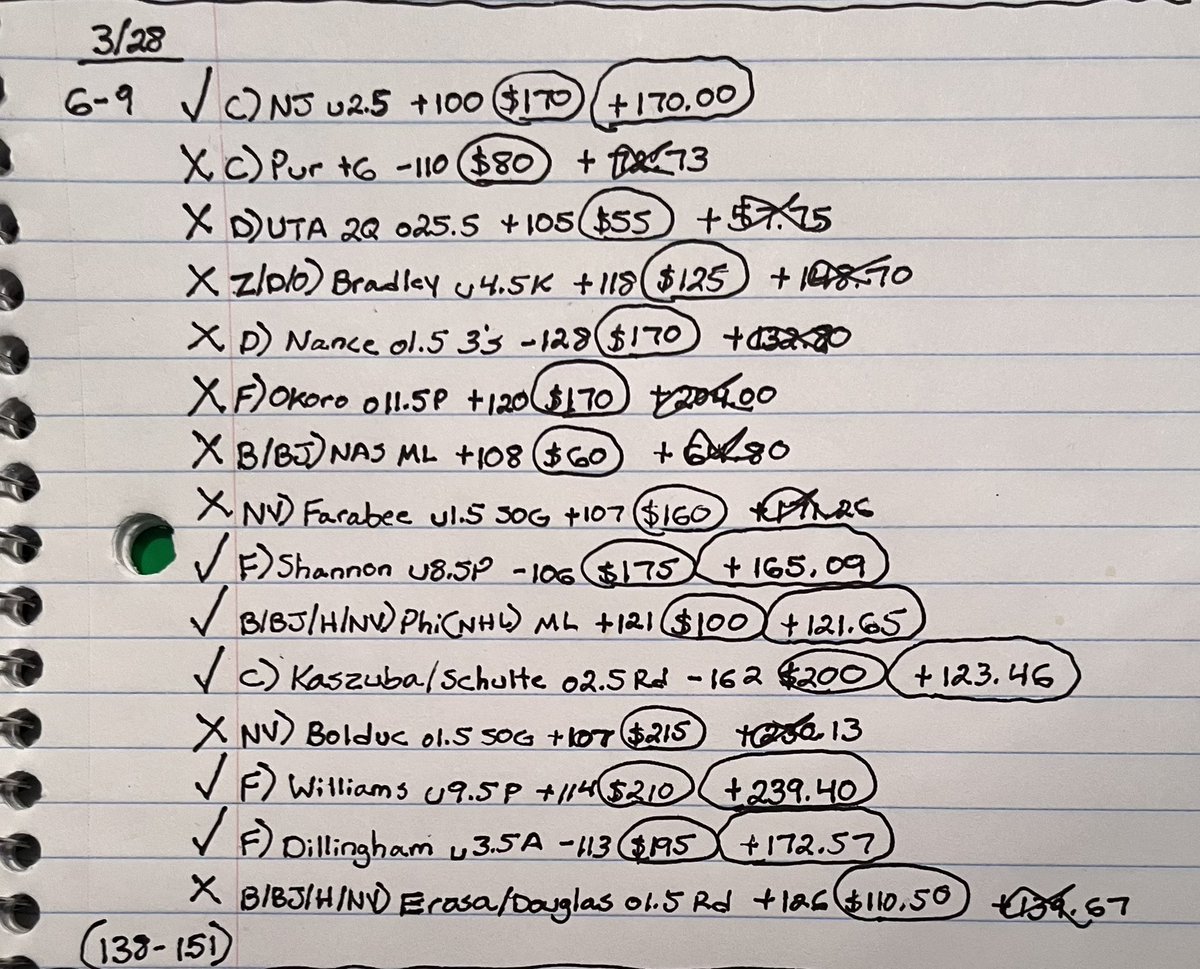 3/28
6-9 ✓ C) NJ u2.5 +100 $170 +170.00
X C) Pur +6 -110 $80 + 72.73
X D) UTA 2Q o25.5 +105 $55 + 57.75
X Z/D/O) Bradley u4.5K +118 $125 + 148.70
X D) Nance o1.5 3's -128 $170 +132.80
X F) Okoro o11.5P +120 $170 +204.00
X B/BJ) NAS ML +108 $60 + 64.80
X NV) Farabee u1.5 SOG +107 $160 +171.26
✓ F) Shannon u8.5P -106 $175 +165.09
✓ B/BJ/H/NV) Phi(NHL) ML +121 $100 +121.65
✓ C) Kaszuba/Schulte o2.5 Rd -162 $200 +123.46
X NV) Bolduc o1.5 SOG +107 $215 +230.13
✓ F) Williams u9.5P +114 $210 +239.40
✓ F) Dillingham u3.5A -113 $195 +172.57
X B/BJ/H/NV) Erosa/Douglas o1.5 Rd +126 $110.50 +139.67
(138-151)